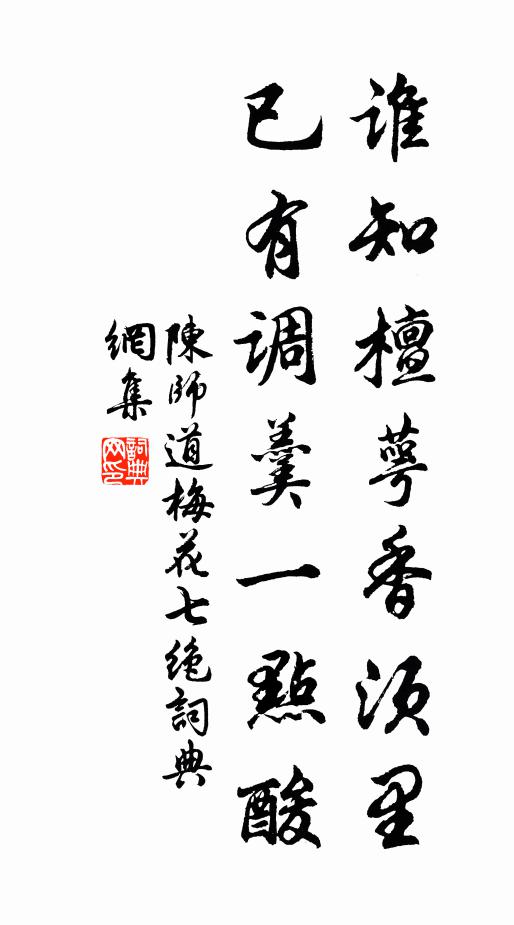 谁知檀萼香须里
已有调羹一點酸
陳師道梅花七绝詞典
網集
詞典網印